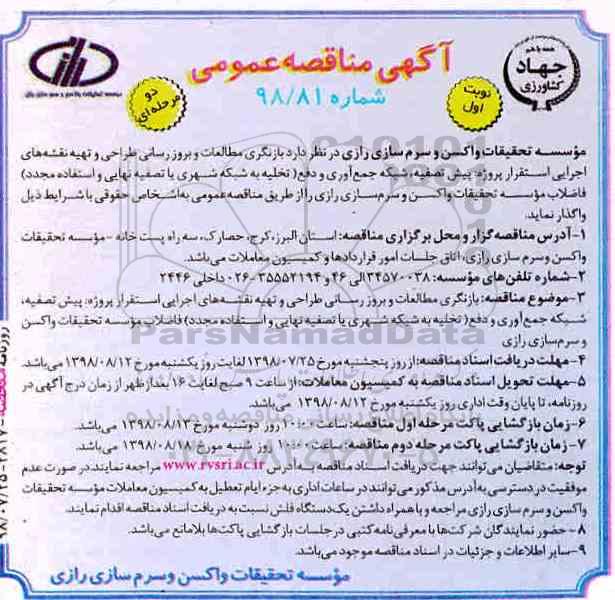 همه با هم
جهاد
کشاورزی
آگهی مناقصه عمومی
شماره ۹۸/۸۱
نوبت
اول
دو
مرحله‌ای
موسسه تحقیقات واکسن و سرم سازی رازی
مؤسسه تحقیقات واکسن و سرم سازی رازی در نظر دارد بازنگری مطالعات و بروز رسانی طراحی و تهیه نقشه‌های
اجرایی استقرار پروژه: پیش تصفیه، شبکه جمع‌آوری و دفع (تخلیه به شبکه شهری یا تصفیه نهایی و استفاده مجدد)
فاضلاب مؤسسه تحقیقات واکسن و سرم‌سازی رازی را از طریق مناقصه عمومی به‌اشخاص حقوقی با شرایط ذیل
واگذار نماید.
۱-آدرس مناقصه‌گزار و محل برگزاری مناقصه: استان البرز، کرج، حصارک، سه راه پست خانه -مؤسسه تحقیقات
واکسن و سرم سازی رازی، اتاق جلسات امور قراردادها و کمیسیون معاملات می‌باشد.
۲-شماره تلفن‌های مؤسسه: ۳۴۵۷۰۰۳۸ الی ۴۶ و ۳۵۵۵۲۱۹۴-۰۲۶ داخلی ۲۴۴۶
۳-موضوع مناقصه: بازنگری مطالعات و بروز رسانی طراحی و تهیه نقشه‌های اجرایی استقرار پروژه: پیش تصفیه،
شبکه جمع‌آوری و دفع (تخلیه به شبکه شهری یا تصفیه نهایی و استفاده مجدد) فاضلاب مؤسسه تحقیقات واکسن
و سرم‌سازی رازی
۴-مهلت دریافت اسناد مناقصه: از روز پنجشنبه مورخ ۱۳۹۸/۰۷/۲۵ لغایت روز یکشنبه مورخ ۱۳۹۸/۰۸/۱۲ می‌باشد.
۵-مهلت تحویل اسناد مناقصه به کمیسیون معاملات: از ساعت ۹ صبح لغایت ۱۶ بعداز ظهر از زمان درج آگهی در
روزنامه، تا پایان وقت اداری روز یکشنبه مورخ ۱۳۹۸/۰۸/۱۲ می‌باشد.
۶-زمان بازگشایی پاکت مرحله اول مناقصه: ساعت ۱۰:۰۰ روز دوشنبه مورخ ۱۳۹۸/۰۸/۱۳ می‌باشد.
۷-زمان بازگشایی پاکت مرحله دوم مناقصه: ساعت ۱۰:۰۰ روز شنبه مورخ ۱۳۹۸/۰۸/۱۸ می‌باشد.
توجه: متقاضیان می‌توانند جهت دریافت اسناد مناقصه به‌آدرس www.rvsri.ac.ir مراجعه نمایند. در صورت عدم
موفقیت در دسترسی به‌آدرس مذکور می‌توانند در ساعات اداری به‌جزء ایام تعطیل به کمیسیون معاملات مؤسسه تحقیقات
واکسن و سرم سازی رازی مراجعه و با همراه داشتن یک‌دستگاه فلش نسبت به دریافت اسناد مناقصه اقدام نمایند.
۸-حضور نمایندگان شرکت‌ها با معرفی‌نامه کتبی در جلسات بازگشایی پاکت‌ها بلامانع می‌باشد.
۹-سایر اطلاعات و جزئیات در اسناد مناقصه موجود می‌باشد.
مؤسسه تحقیقات واکسن و سرم سازی رازی
ParsNamadData